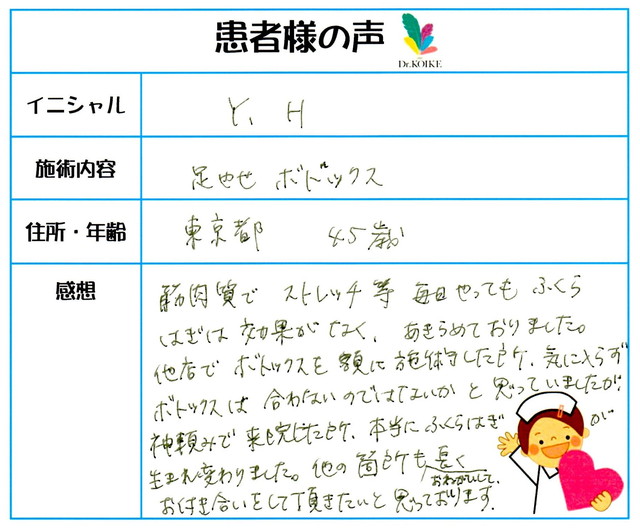 患者様の声
Dr.KOIKE
イニシャル
Y. H
施術内容
足やせ ボトックス
住所・年齢
東京都 45歳
感想
筋肉質で ストレッチ等 毎日やっても ふくら
はぎは 効果がなく、あきらめておりました。
他店で ボトックスを 額に 施術した所、気に入らず
ボトックスは 合わないのではないかと 思っていましたが、
神頼みで 来院した所、本当に ふくらはぎが
生まれ変わりました。他の箇所も 長く
おねがいして、
お付き合いをして頂きたいと 思っております。